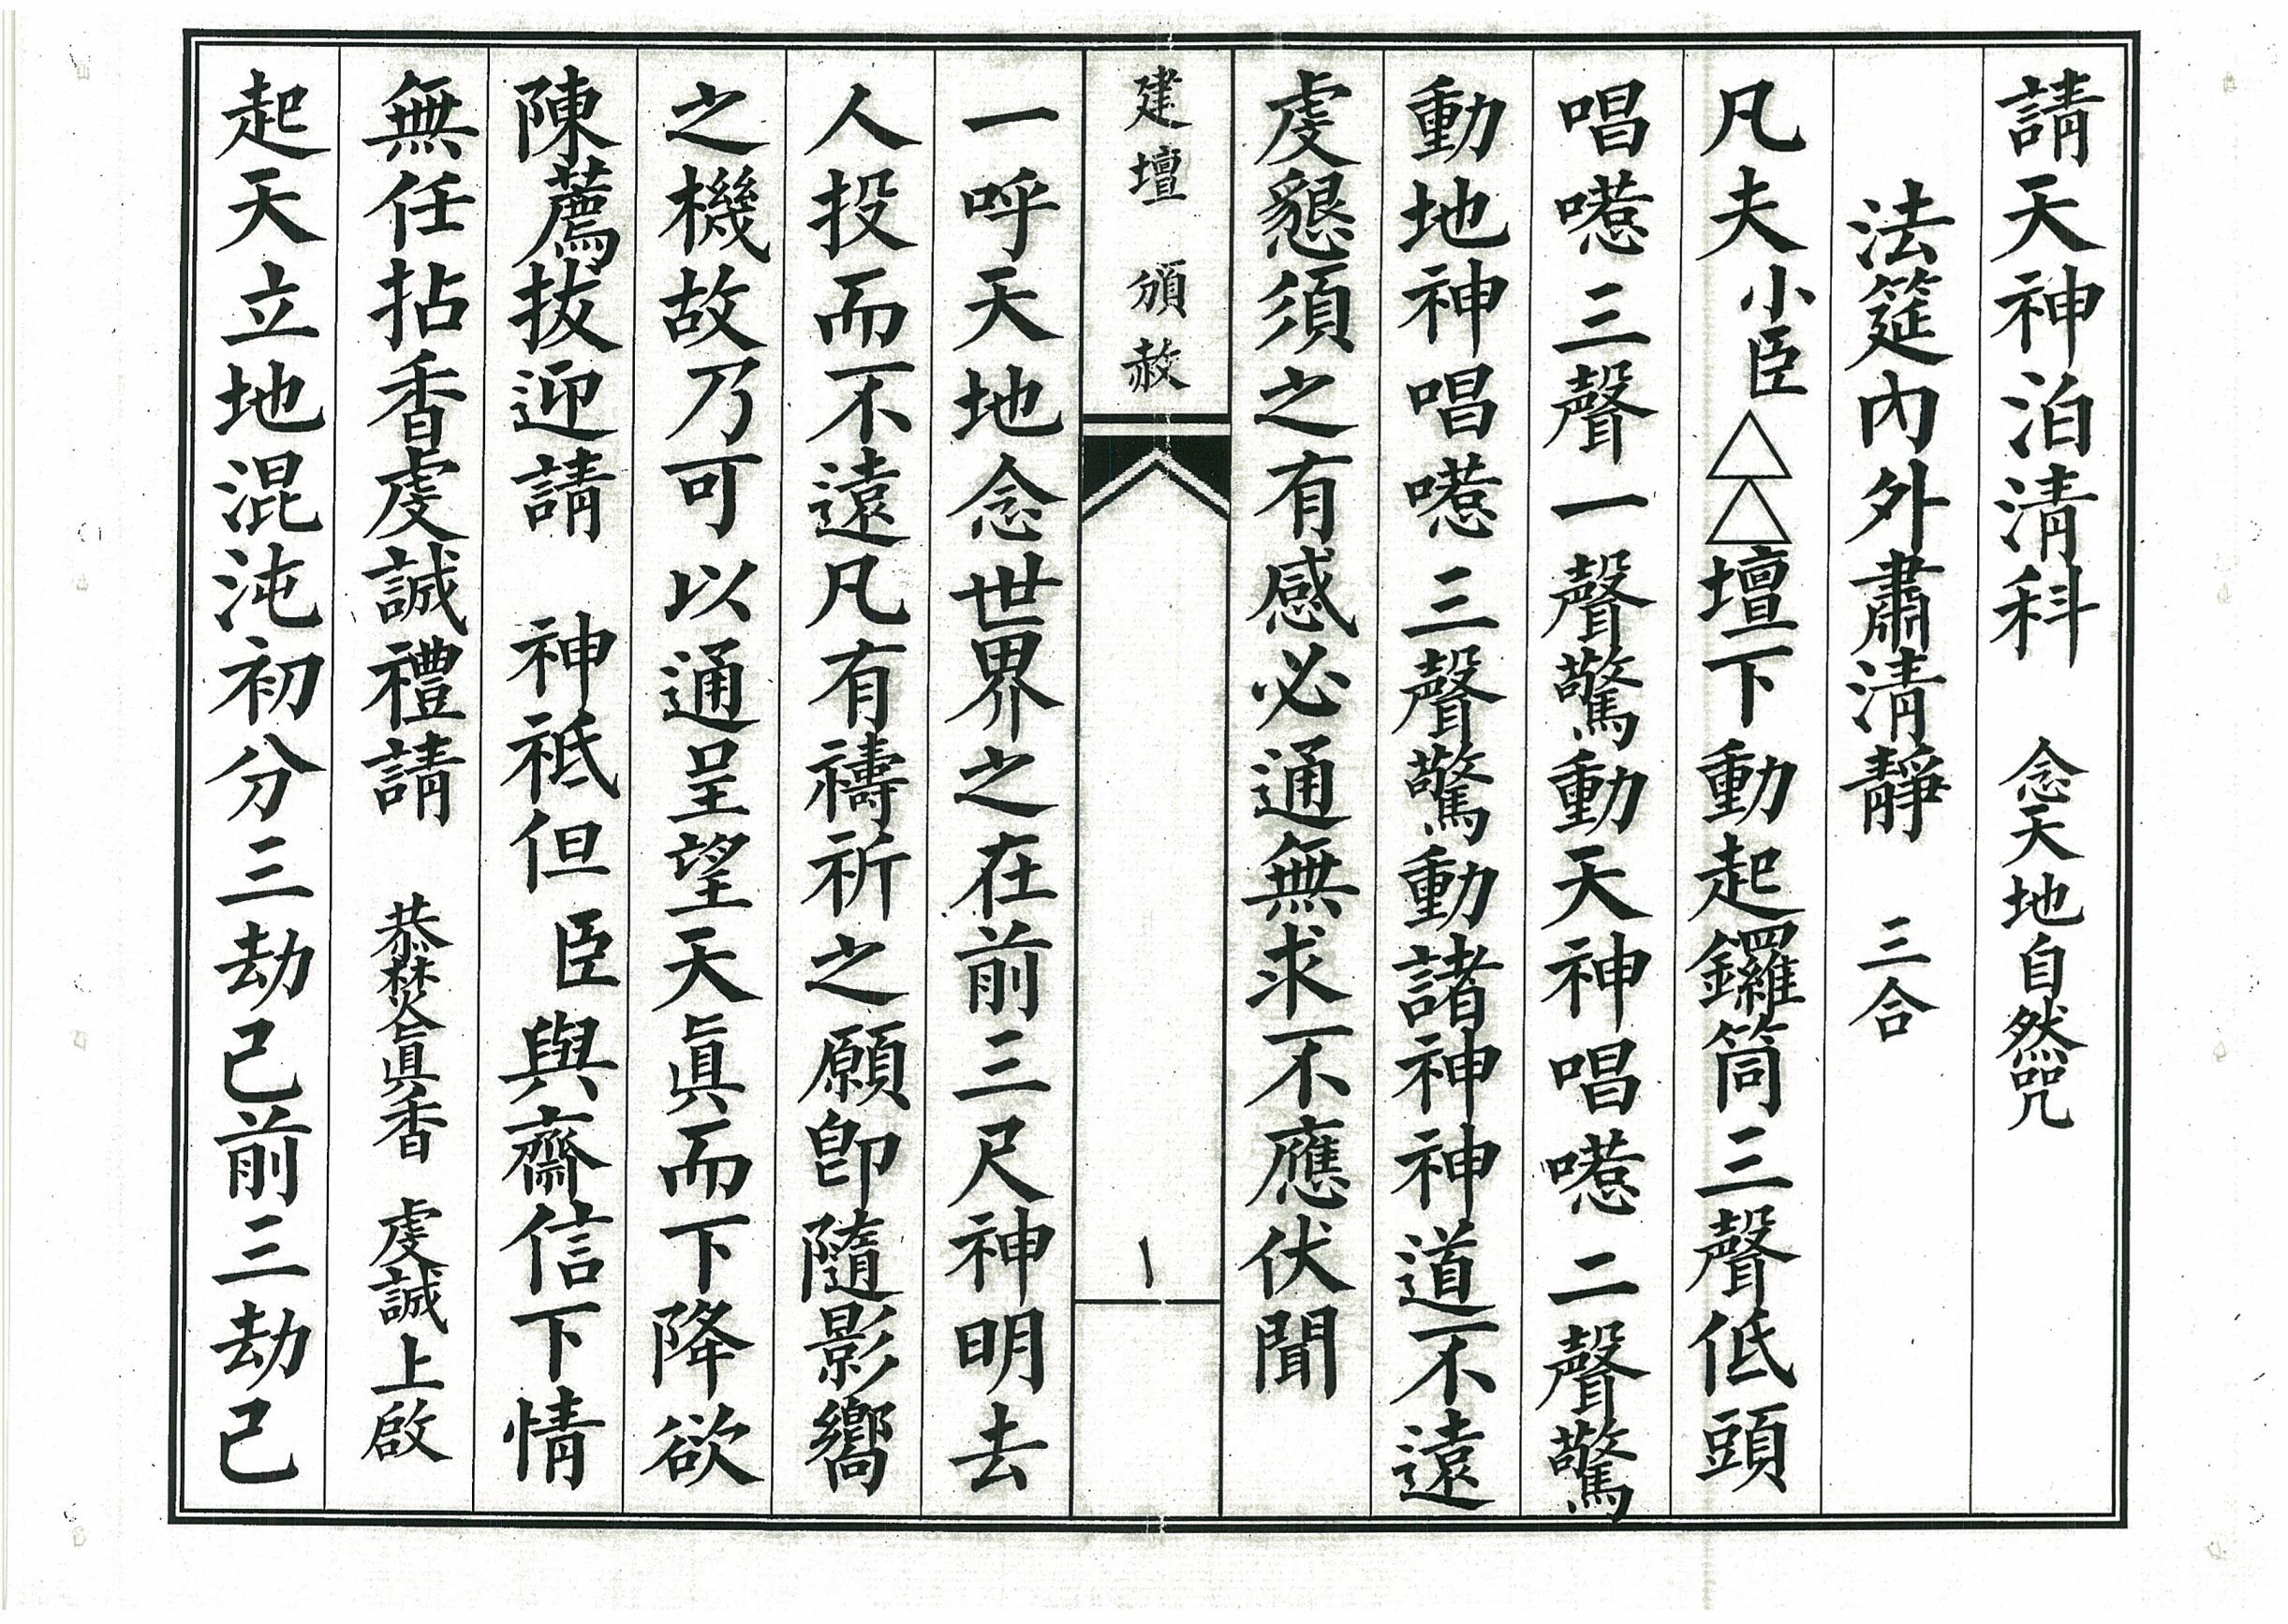 請天神泊清科 念天地自然咒
法筵內外肅清靜 三合
凡夫小臣△△壇下動起鑼筒三聲低頭
唱喏三聲一聲驚動天神唱喏二聲驚
動地神唱喏三聲驚動諸神神道不遠
虔懇須之有感必通無求不應伏聞
建壇 頒赦
一
一呼天地念世界之在前三尺神明去
人投而不遠凡有禱祈之願卽隨影嚮
之機故乃可以通呈望天眞而下降欲
陳薦拔迎請 神祇但臣與齋信下情
無任拈香虔誠禮請 恭焚眞香 虔誠上啟
起天立地混沌初分三劫己前三劫己